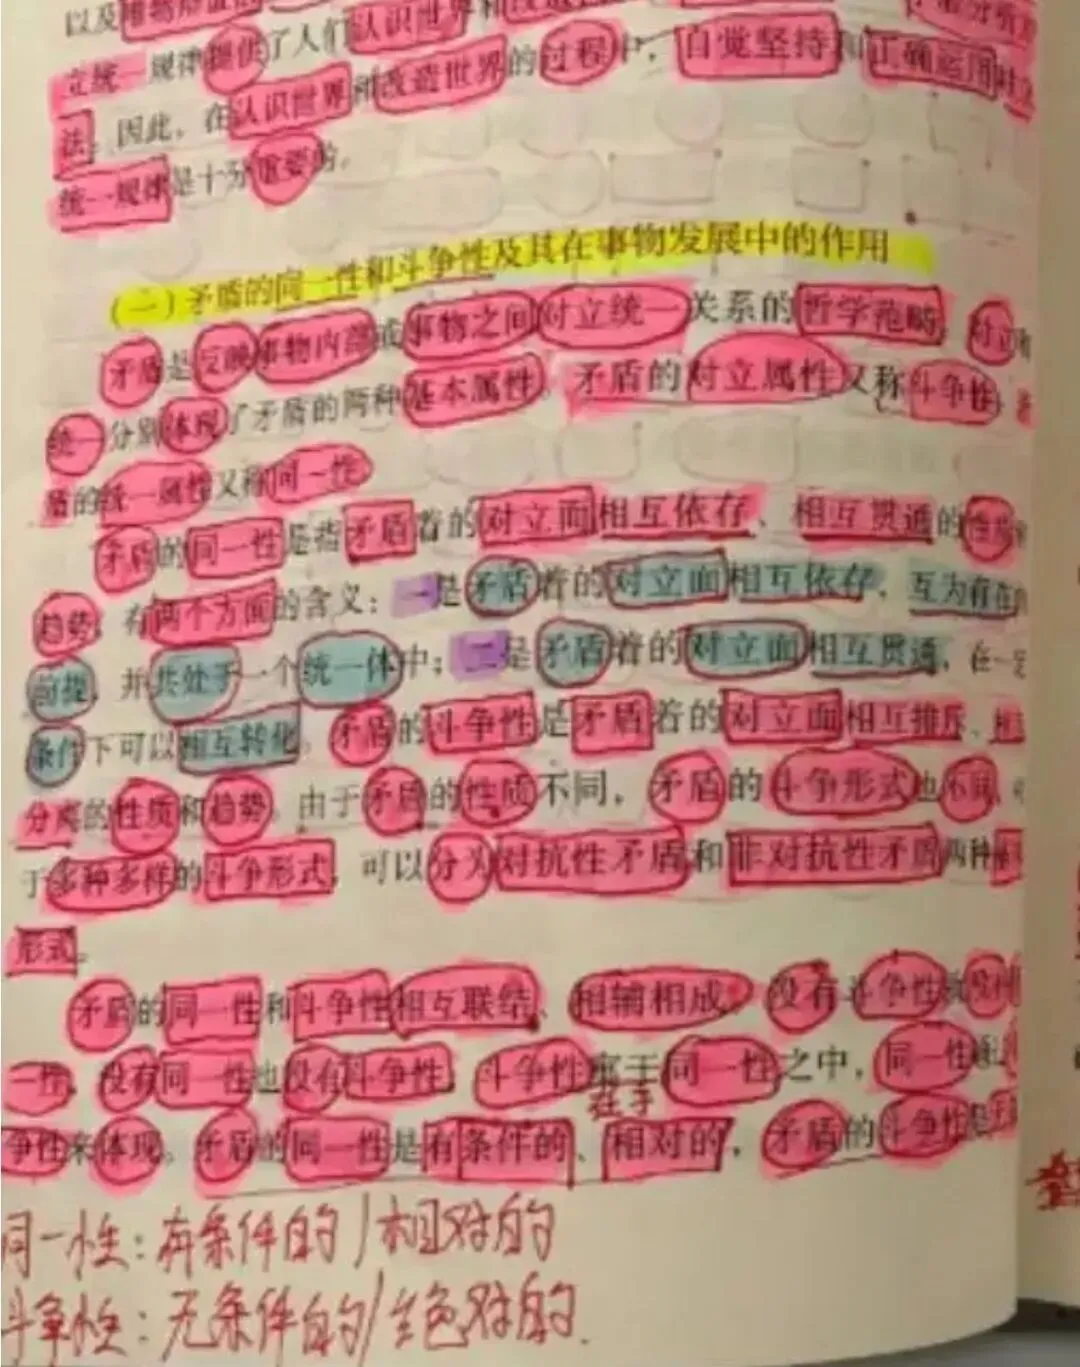 以及
立统一规律提供了人们认识世界和改造世界的过程中，自觉坚持和正确运用对立
法。因此，在认识世界和改造世界的过程中，自觉坚持和正确运用
统一规律是十分重要的。
（一）矛盾的同一性和斗争性及其在事物发展中的作用
矛盾是反映事物内部或事物之间对立统一关系的哲学范畴。对立和
统一分别体现了矛盾的两种基本属性。矛盾的对立属性又称斗争性，矛
盾的统一属性又称同一性。
矛盾的同一性是指矛盾着的对立面相互依存、相互贯通的性质
趋势。有两个方面的含义：一是矛盾着的对立面相互依存，互为存在
前提，并共处于一个统一体中；二是矛盾着的对立面相互贯通，在一定
条件下可以相互转化。矛盾的斗争性是矛盾着的对立面相互排斥、相互
分离的性质和趋势。由于矛盾的性质不同，矛盾的斗争形式也不同，
于多种多样的斗争形式，可以分为对抗性矛盾和非对抗性矛盾两种
形式。
矛盾的同一性和斗争性相互联结、相辅相成。没有斗争性就没有
一性，没有同一性也没有斗争性，斗争性寓于同一性之中，同一性通过
在于
争性来体现。矛盾的同一性是有条件的、相对的，矛盾的斗争性是
同一性：有条件的/相对的
斗争性：无条件的/绝对的.